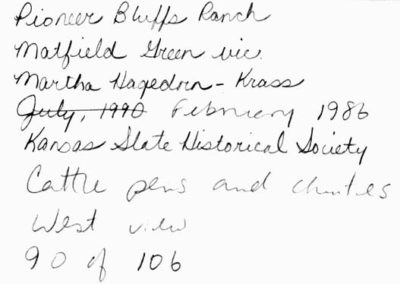 Pioneer Bluffs Ranch
Matfield Green vic.
Martha Hagedorn-Krass
July, 1990 February 1986
Kansas State Historical Society
Cattle pens and chutes
West view
90 of 106